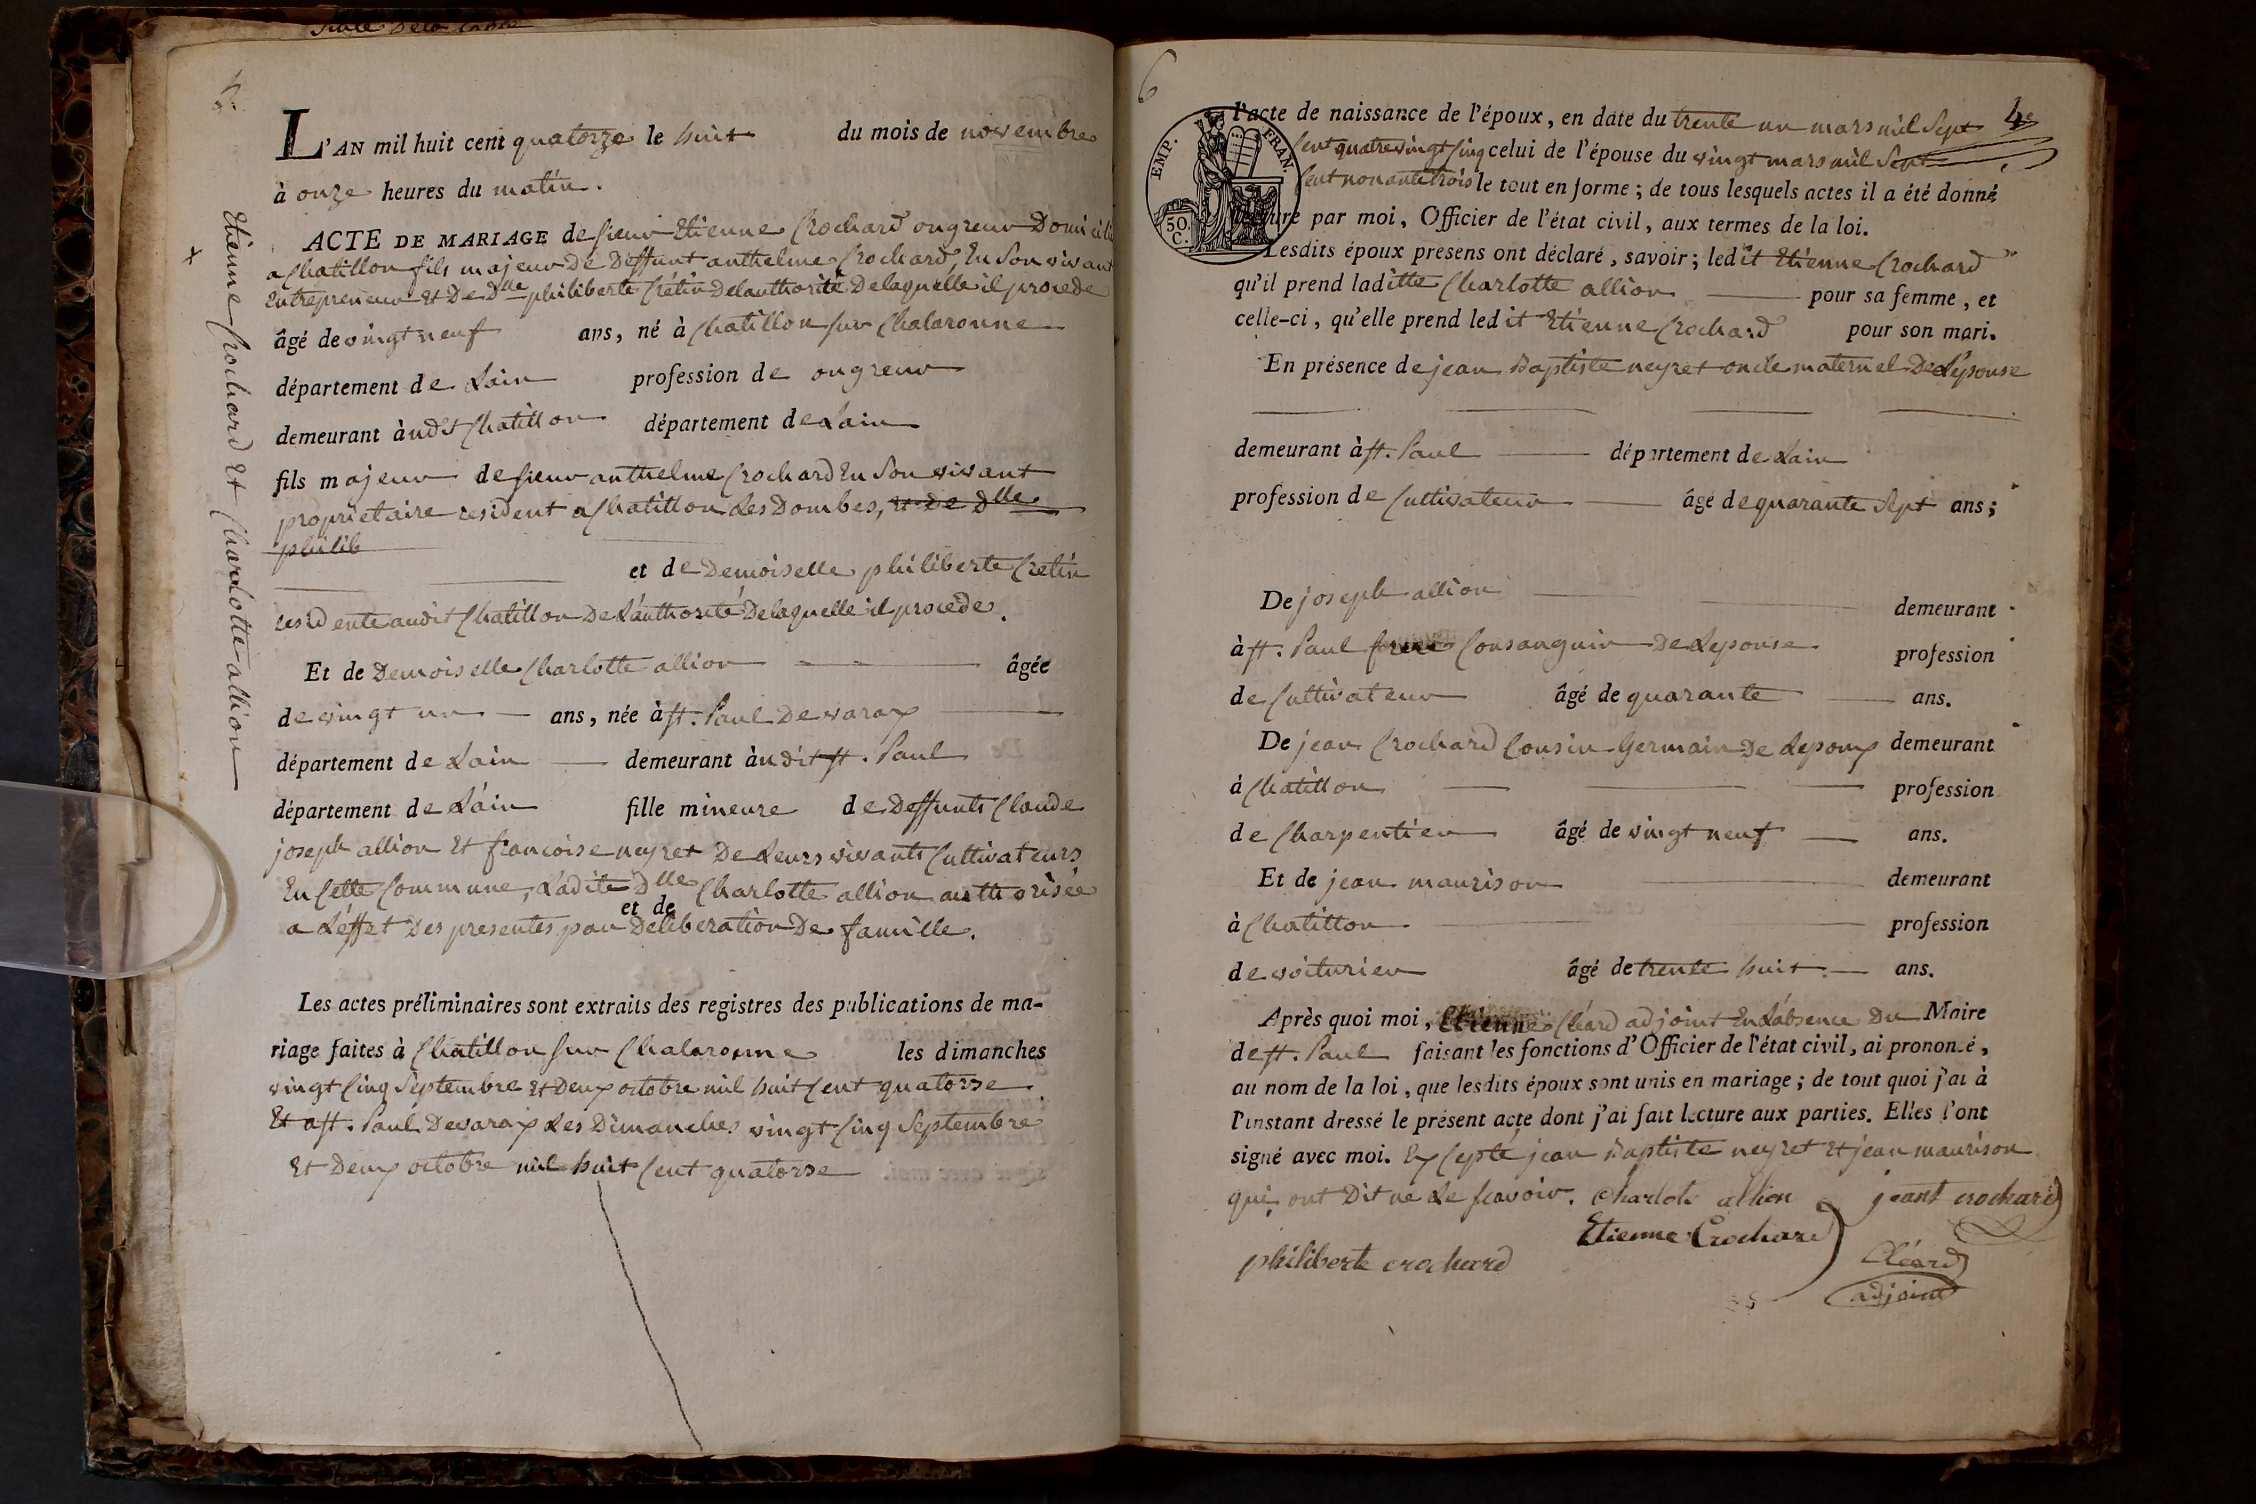 5.
L'AN mil huit cent quatorze le huit du mois de novembre
à onze heures du matin.
Etienne Crochard Et Charlotte allion
ACTE DE MARIAGE de sieur Etienne Crochard ongreur Domicilié
a Chatillon fils majeur De Deffunt anthelme Crochard, En Son vivant
Entrepreneur Et De Dlle philiberte Crétin Delauthorité Delaquelle il procede
âgé de vingt neuf ans, né à Chatillon sur Chalaronne
département de Lain profession de ongreur
demeurant àudt Chatillon département de Lain
fils majeur de sieur anthelme Crochard En Son vivant
proprietaire resident a Chatillon Les Dombes, et de Dlle
philib
et de Demoiselle philiberte Cretin
residente audit Chatillon De Lauthorité Delaquelle il procede.
Et de Demoiselle Charlotte allion âgée
de vingt un ans, née à st. Paul De varax
département de Lain demeurant àudit st. Paul
département de Láin fille mineure de Deffunts Claude
joseph allion Et francoise neyret De Leurs vivants Cultivateurs
En Cette Commune, Ladite Dlle Charlotte allion authorisée
et de
a L'éffet Des presentes par Deliberation De famille.
Les actes préliminaires sont extraits des registres des publications de ma-
riage faites à Chatillon sur Chalaronne les dimanches
vingt Cinq Septembre Et Deux octobre mil huit Cent quatorze
Et a st. Paul Devarax Les Dimanches vingt Cinq Septembre
Et Deux octobre mil huit Cent quatorze
6
4e
EMP. FRAN.
50.
C.
l'acte de naissance de l'époux, en date du trente un mars mil Sept
Cent quatrevingt Cinq celui de l'épouse du vingt mars mil Sept
Cent nonante trois le tout en forme; de tous lesquels actes il a été donné
lecture par moi, Officier de l'état civil, aux termes de la loi.
Lesdits époux presens ont déclaré, savoir; ledit Etienne Crochard
qu'il prend laditte Charlotte allion pour sa femme, et
celle-ci, qu'elle prend ledit Etienne Crochard pour son mari.
En présence de jean Baptiste neyret oncle maternel De Lépouse
demeurant à st. Paul département de Lain
profession de Cultivateur âgé de quarante Sept ans;
De joseph allion demeurant
à st. Paul frere Consanguin De Lepouse profession
de Cultivateur âgé de quarante ans.
De jean Crochard Cousin Germain De Lepoux demeurant
à Chatillon profession
de Charpentier âgé de vingt neuf ans.
Et de jean maurison demeurant
à Chatillon profession
de voiturier âgé de trente huit ans.
Après quoi moi, Etienne Cléard adjoint En Lábsence Du Maire
de st. Paul faisant les fonctions d'Officier de l'état civil, ai prononcé,
au nom de la loi, que lesdits époux sont unis en mariage; de tout quoi j'ai à
l'instant dressé le présent acte dont j'ai fait lecture aux parties. Elles l'ont
signé avec moi. Excepté jean Baptiste neyret Et jean maurison
qui ont Dit ne Le scavoir. Charlote allion jeant crochard
Etienne Crochard
philiberte crochard Cléard
adjoint